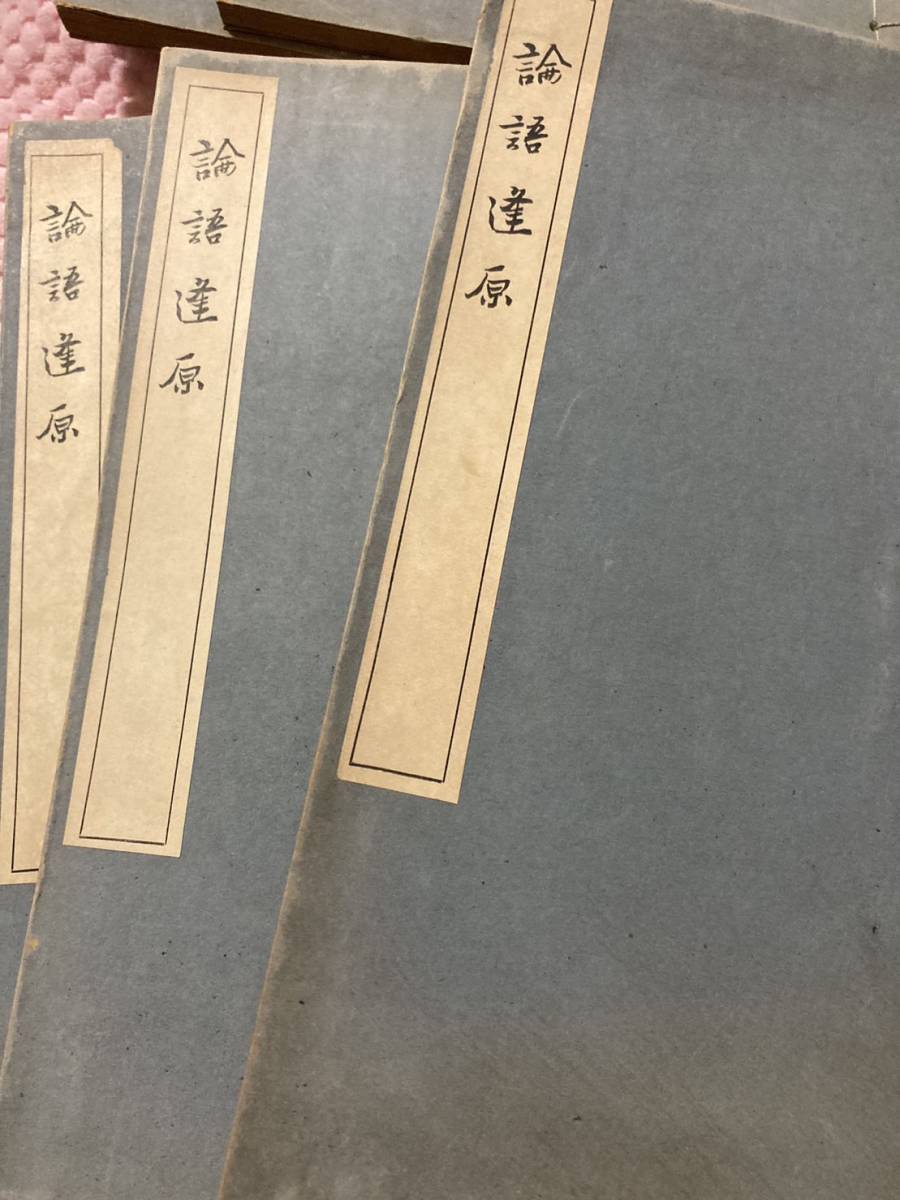 論語逢原
論語逢原
論語逢原